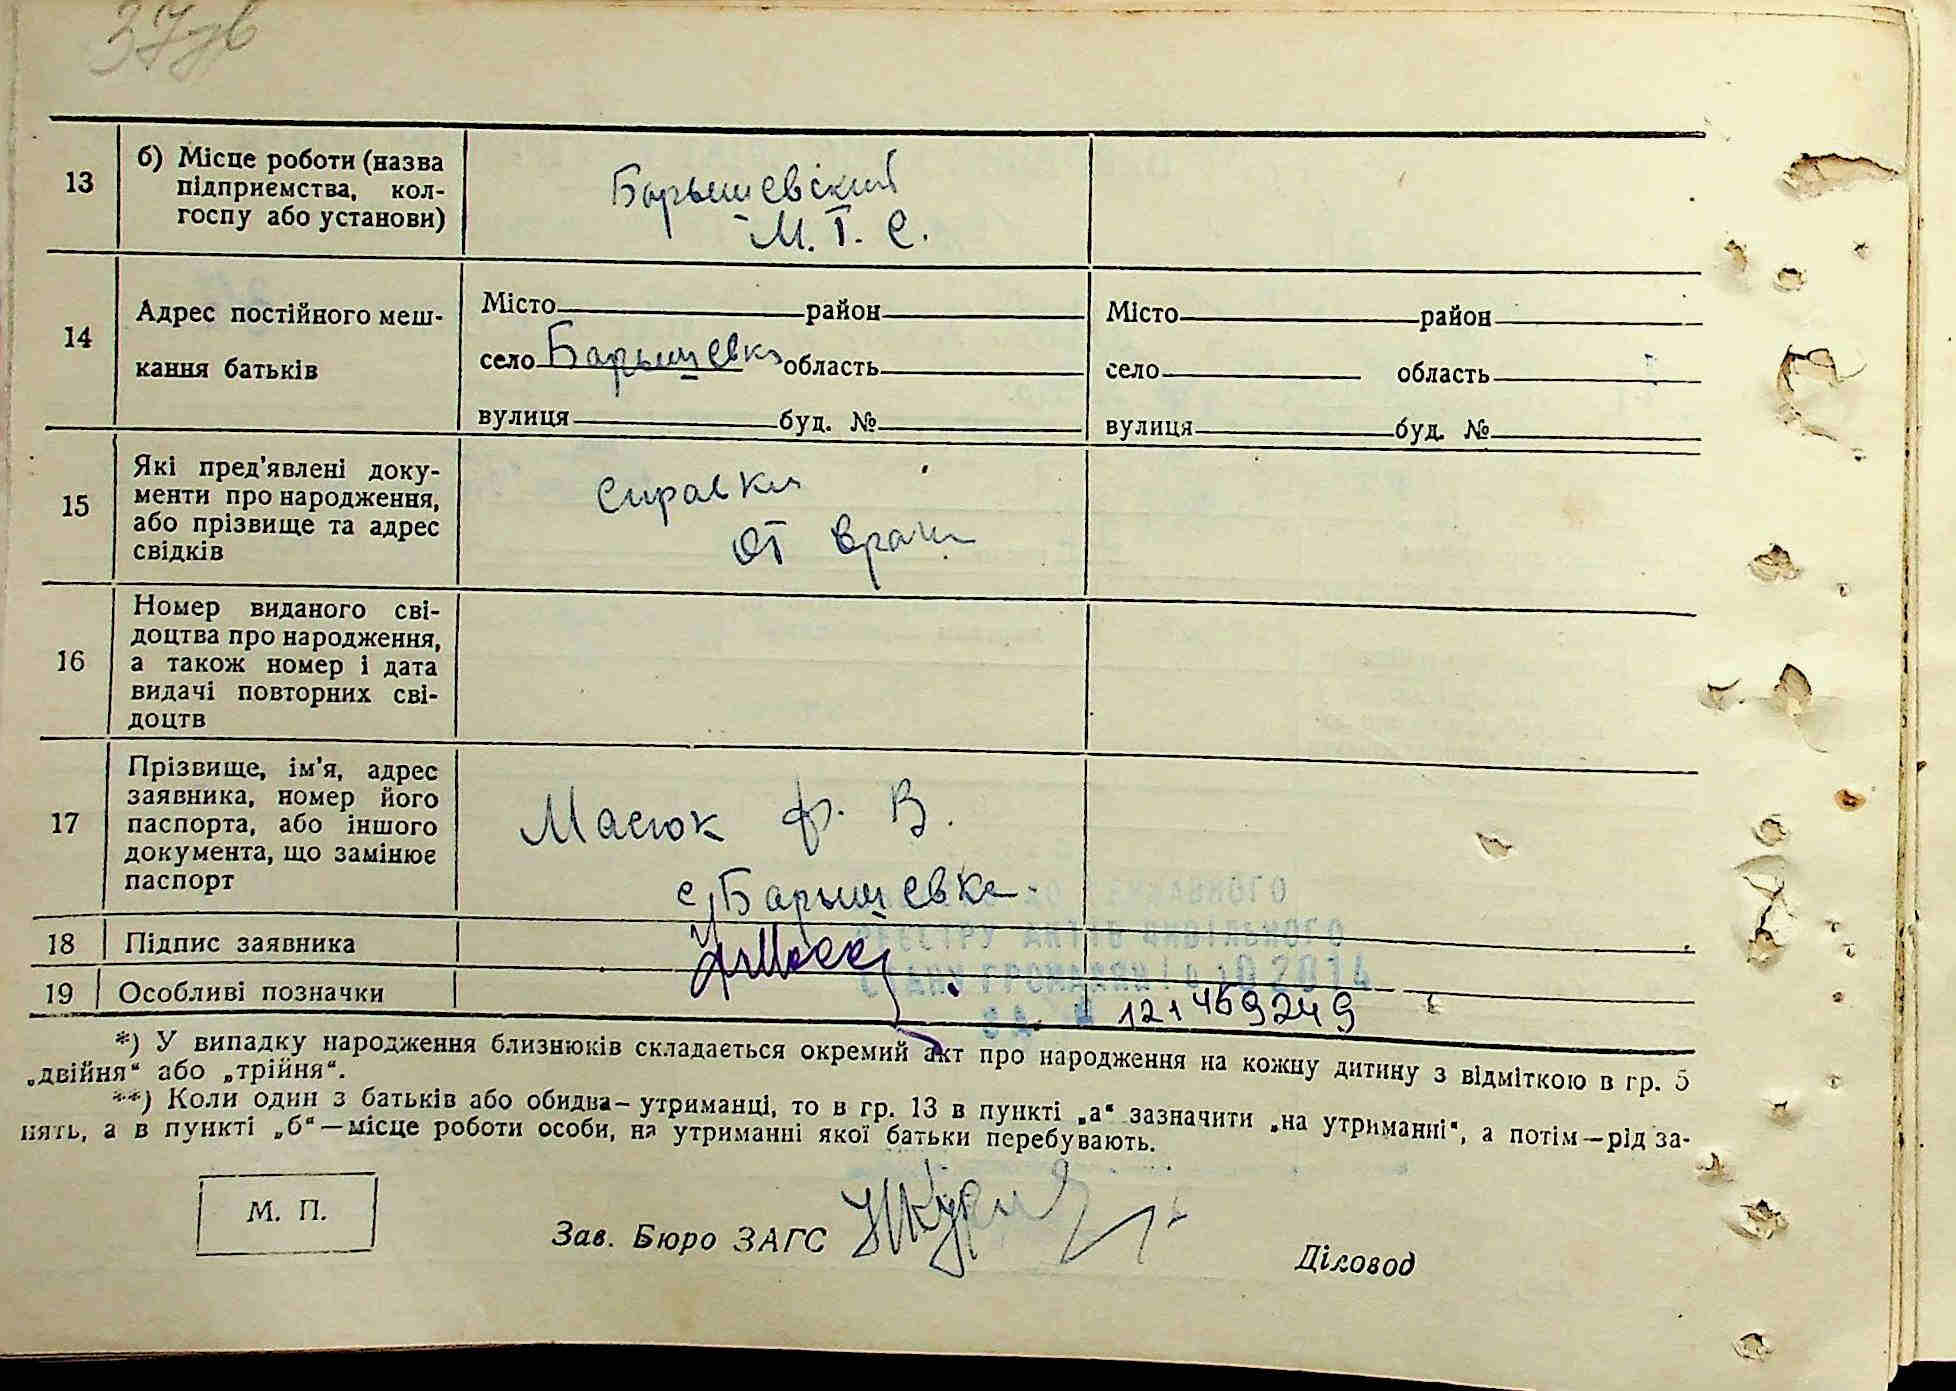 37зв
13
б) Місце роботи (назва
підприємства, кол-
госпу або установи)
Барышевский
М. Т. С.
14
Адрес постійного меш-
кання батьків
Місто район
село Барышевка область
вулиця буд. №
Місто район
село область
вулиця буд. №
15
Які пред'явлені доку-
менти про народження,
або прізвище та адрес
свідків
Справка
от врача
16
Номер виданого сві-
доцтва про народження,
а також номер і дата
видачі повторних сві-
доцтв
17
Прізвище, ім'я, адрес
заявника, номер його
паспорта, або іншого
документа, що замінює
паспорт
Масюк Ф. В.
с. Барышевка
18
Підпис заявника
19
Особливі позначки
ДО ДЕРЖАВНОГО
РЕЄСТРУ АКТІВ ЦИВІЛЬНОГО
СТАНУ ГРОМАДЯН 2014
ЗА № 121469249
*) У випадку народження близнюків складається окремий акт про народження на кожну дитину з відміткою в гр. 5
„двійня“ або „трійня“.
**) Коли один з батьків або обидва— утриманці, то в гр. 13 в пункті „а“ зазначити „на утриманні“, а потім—рід за-
нять, а в пункті „б“—місце роботи особи, на утриманні якої батьки перебувають.
М. П.
Зав. Бюро ЗАГС
Діловод